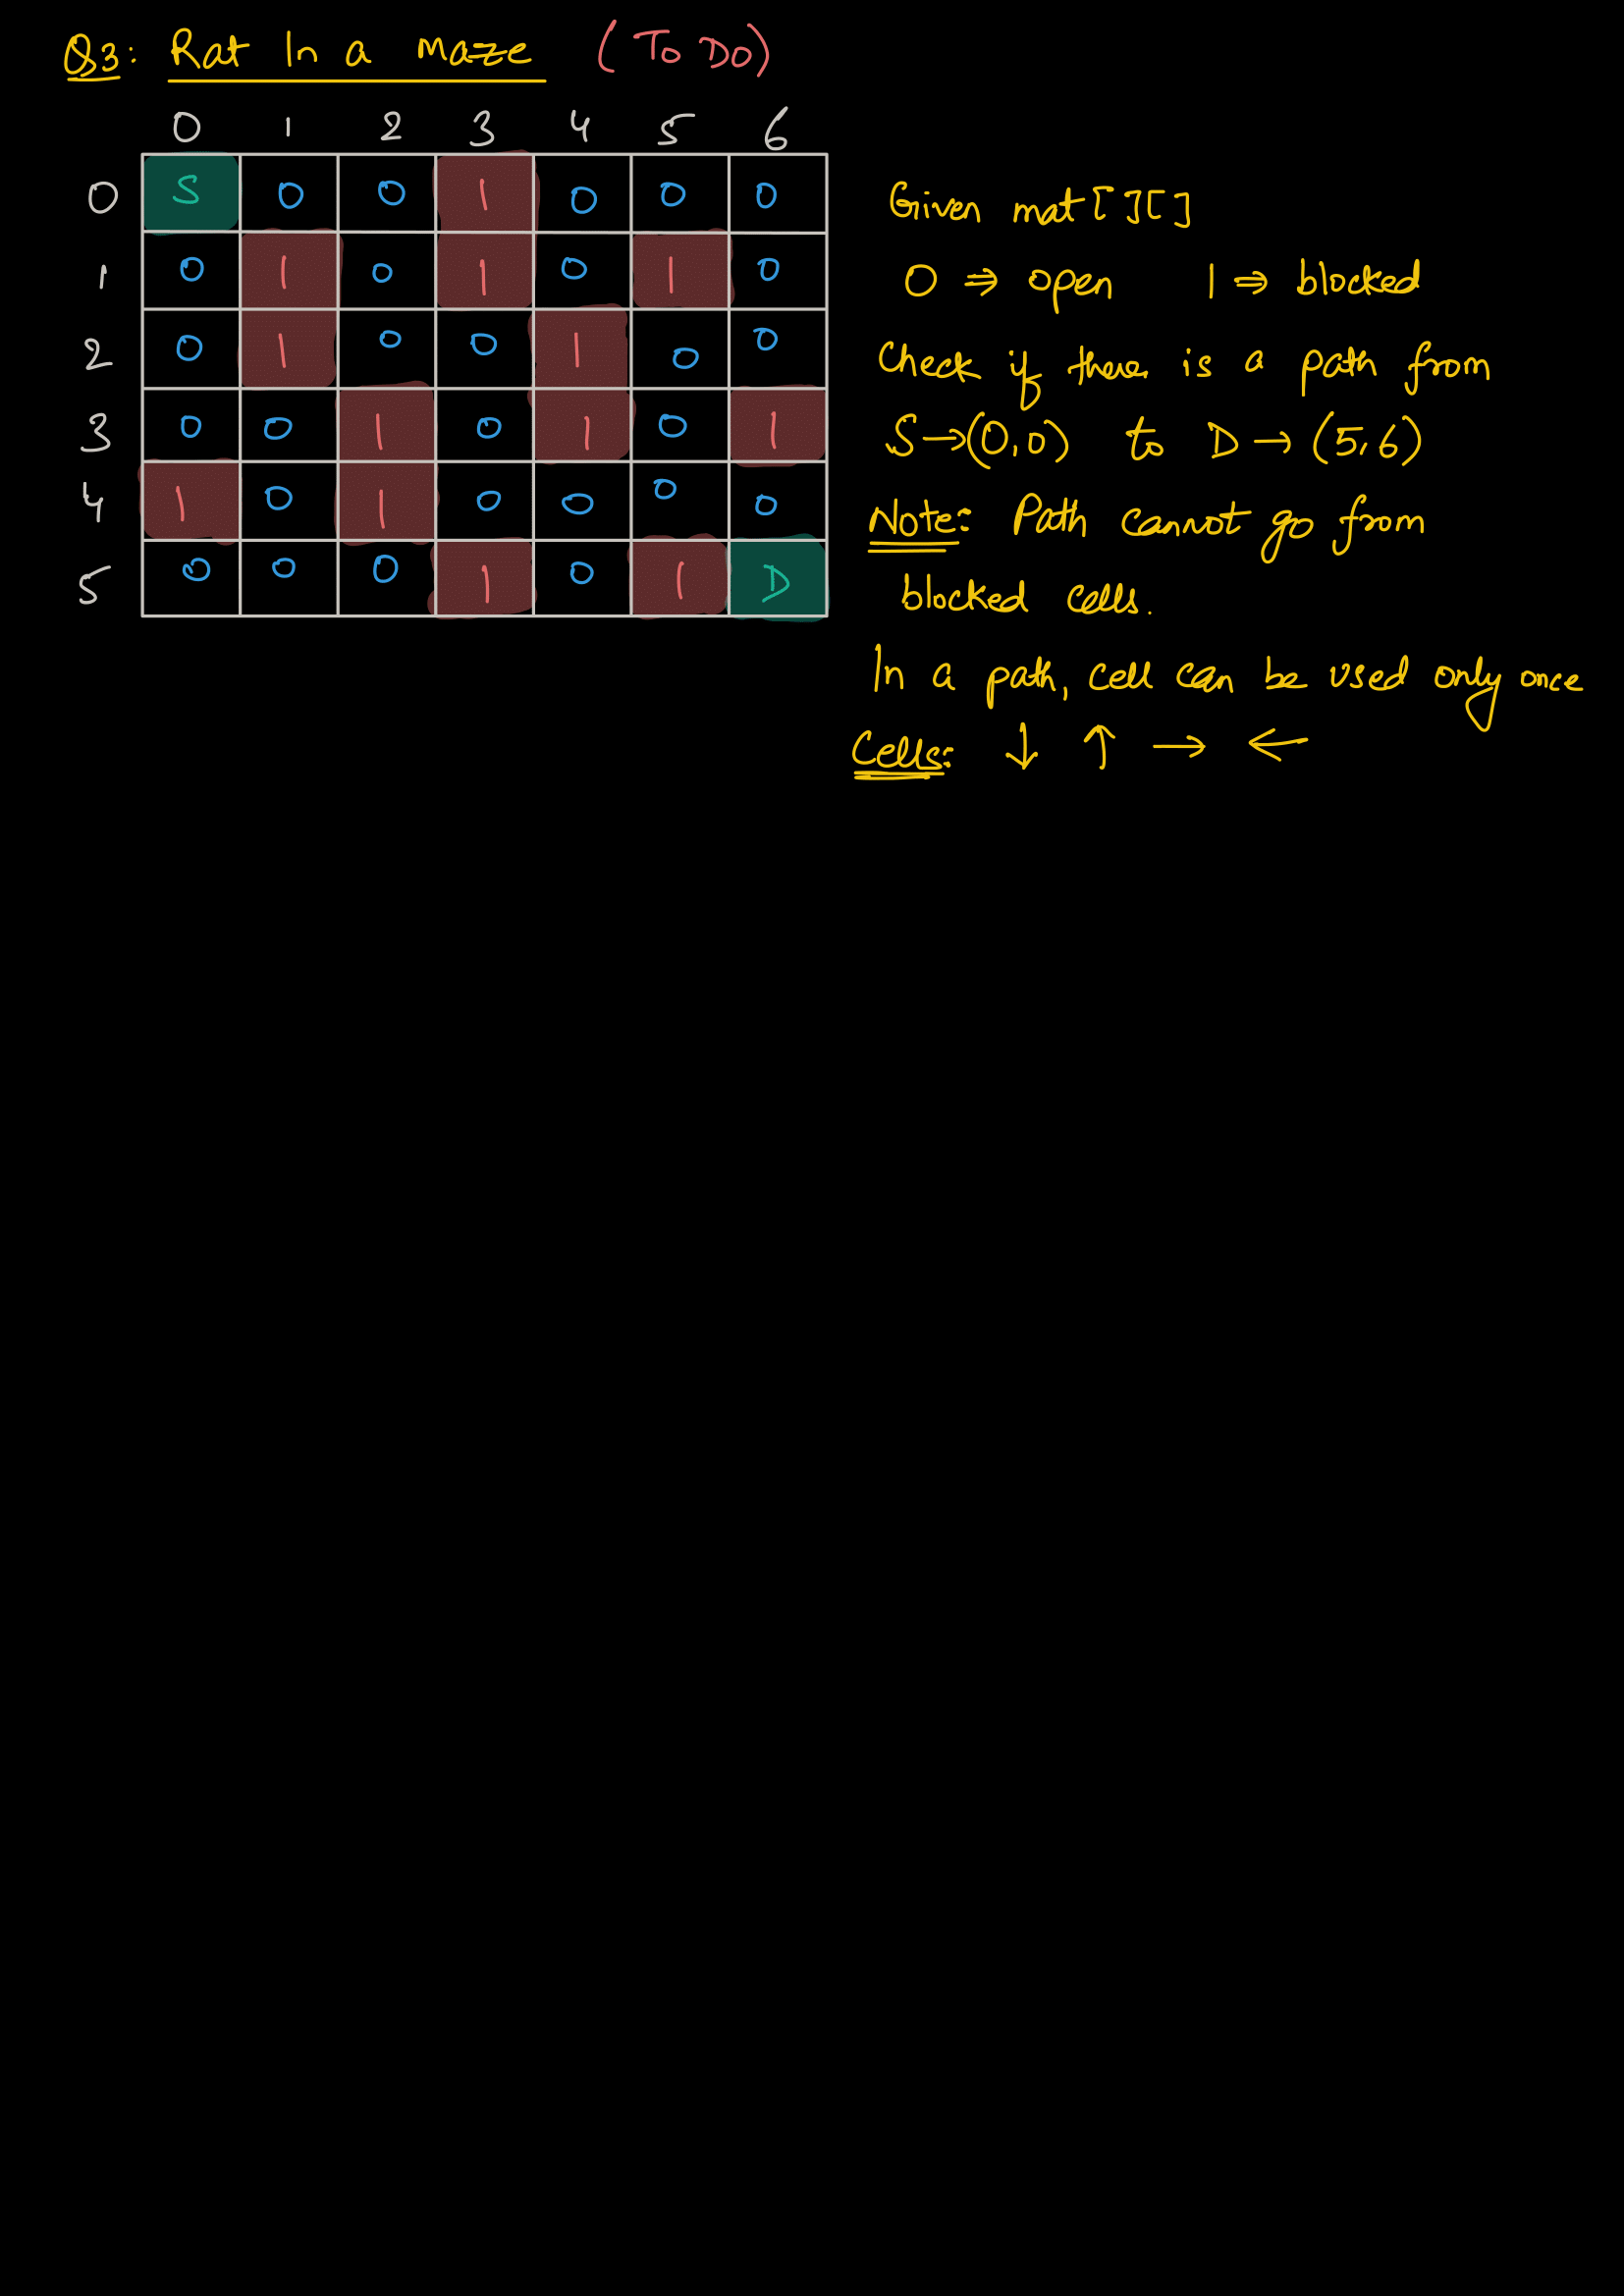 Q3: Rat In a Maze (To Do)
0 1 2 3 4 5 6
0 S 0 0 1 0 0 0
1 0 1 0 1 0 1 0
2 0 1 0 0 1 0 0
3 0 0 1 0 1 0 1
4 1 0 1 0 0 0 0
5 0 0 0 1 0 1 D
Given mat[][]
0 ⇒ open 1 ⇒ blocked
Check if there is a path from
S→(0,0) to D→(5,6)
Note: Path cannot go from
blocked cells.
In a path, cell can be used only once
Cells: ↓ ↑ → ←